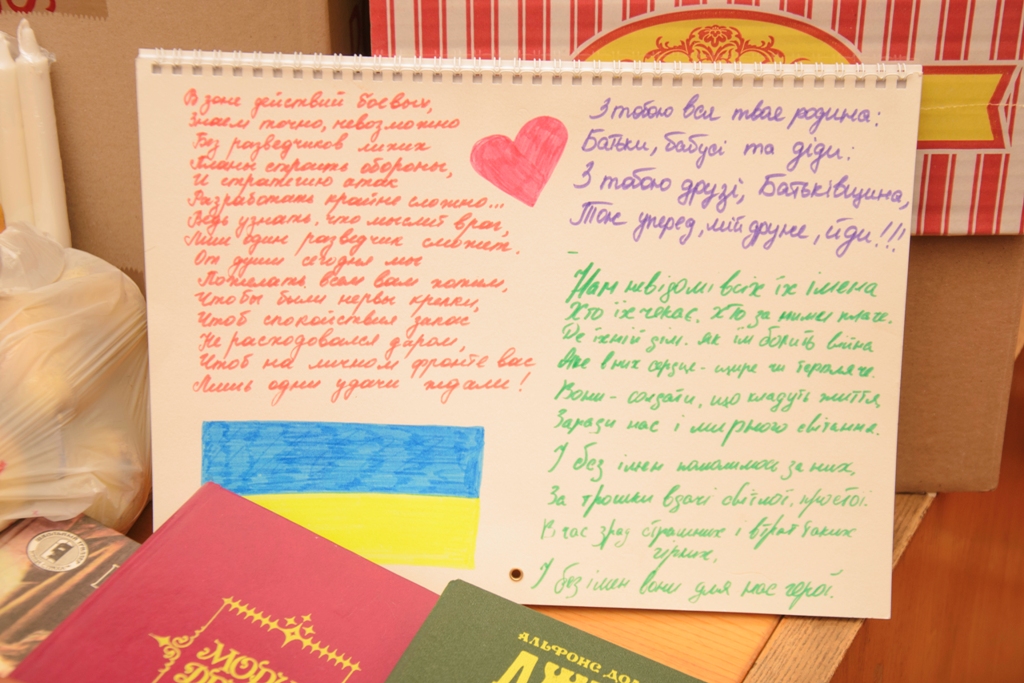 В зоне действий боевых,
Знаем точно, невозможно
Без разведчиков лихих
Планы строить обороны,
И стратегию атак
Разработать крайне сложно...
Ведь узнать, что мыслит враг,
Лиш один разведчик сможет.
От души сегодня мы
Пожелать всем вам хотим,
Чтобы были нервы крепки,
Чтоб спокойствия запас
Не расходовался даром,
Чтоб на личном фронте вас
Лишь одни удачи ждали!
З тобою вся твоя родина:
Батьки, бабусі та діди:
З тобою друзі, Батьківщина,
Тож уперед, мій друже, йди!!!
Нам невідомі всіх їх імена
Хто їх чекає. Хто за ними плаче.
Де їхній дім. як їм болить війна
Але в них серце - щире чи гаряче.
Вони - солдати, що кладуть життя,
Заради нас і мирного світання.
І без імен помолимось за них,
За трошки вдачі світлої, простої.
В час зрад страшних і втрат таких
гірких,
І без імен вони для нас герої.
АЛЬФОНС ДО